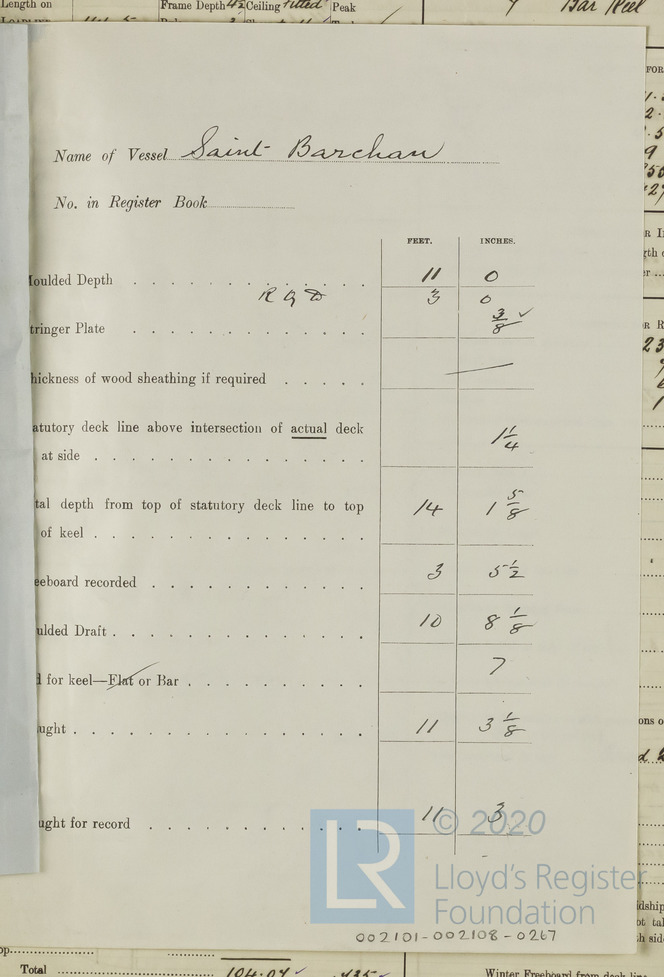 Length on
Frame Depth 4½ Ceiling fitted Peak
7 Bar Keel
Name of Vessel Saint Barchan
No. in Register Book
FEET. INCHES.
Moulded Depth 11 0
R Q D 3 0
tringer Plate 3/8 ✓
hickness of wood sheathing if required —
atutory deck line above intersection of actual deck
at side 1¼
tal depth from top of statutory deck line to top
of keel 14 1 5/8
eeboard recorded 3 5½
ulded Draft 10 8 1/8
d for keel—Flat or Bar 7
ught 11 3 1/8
ught for record 11 3
LR © 2020
Lloyd's Register
Foundation
002101-002108-0267
Total 104.07 ✓
Winter Freeboard from deck line